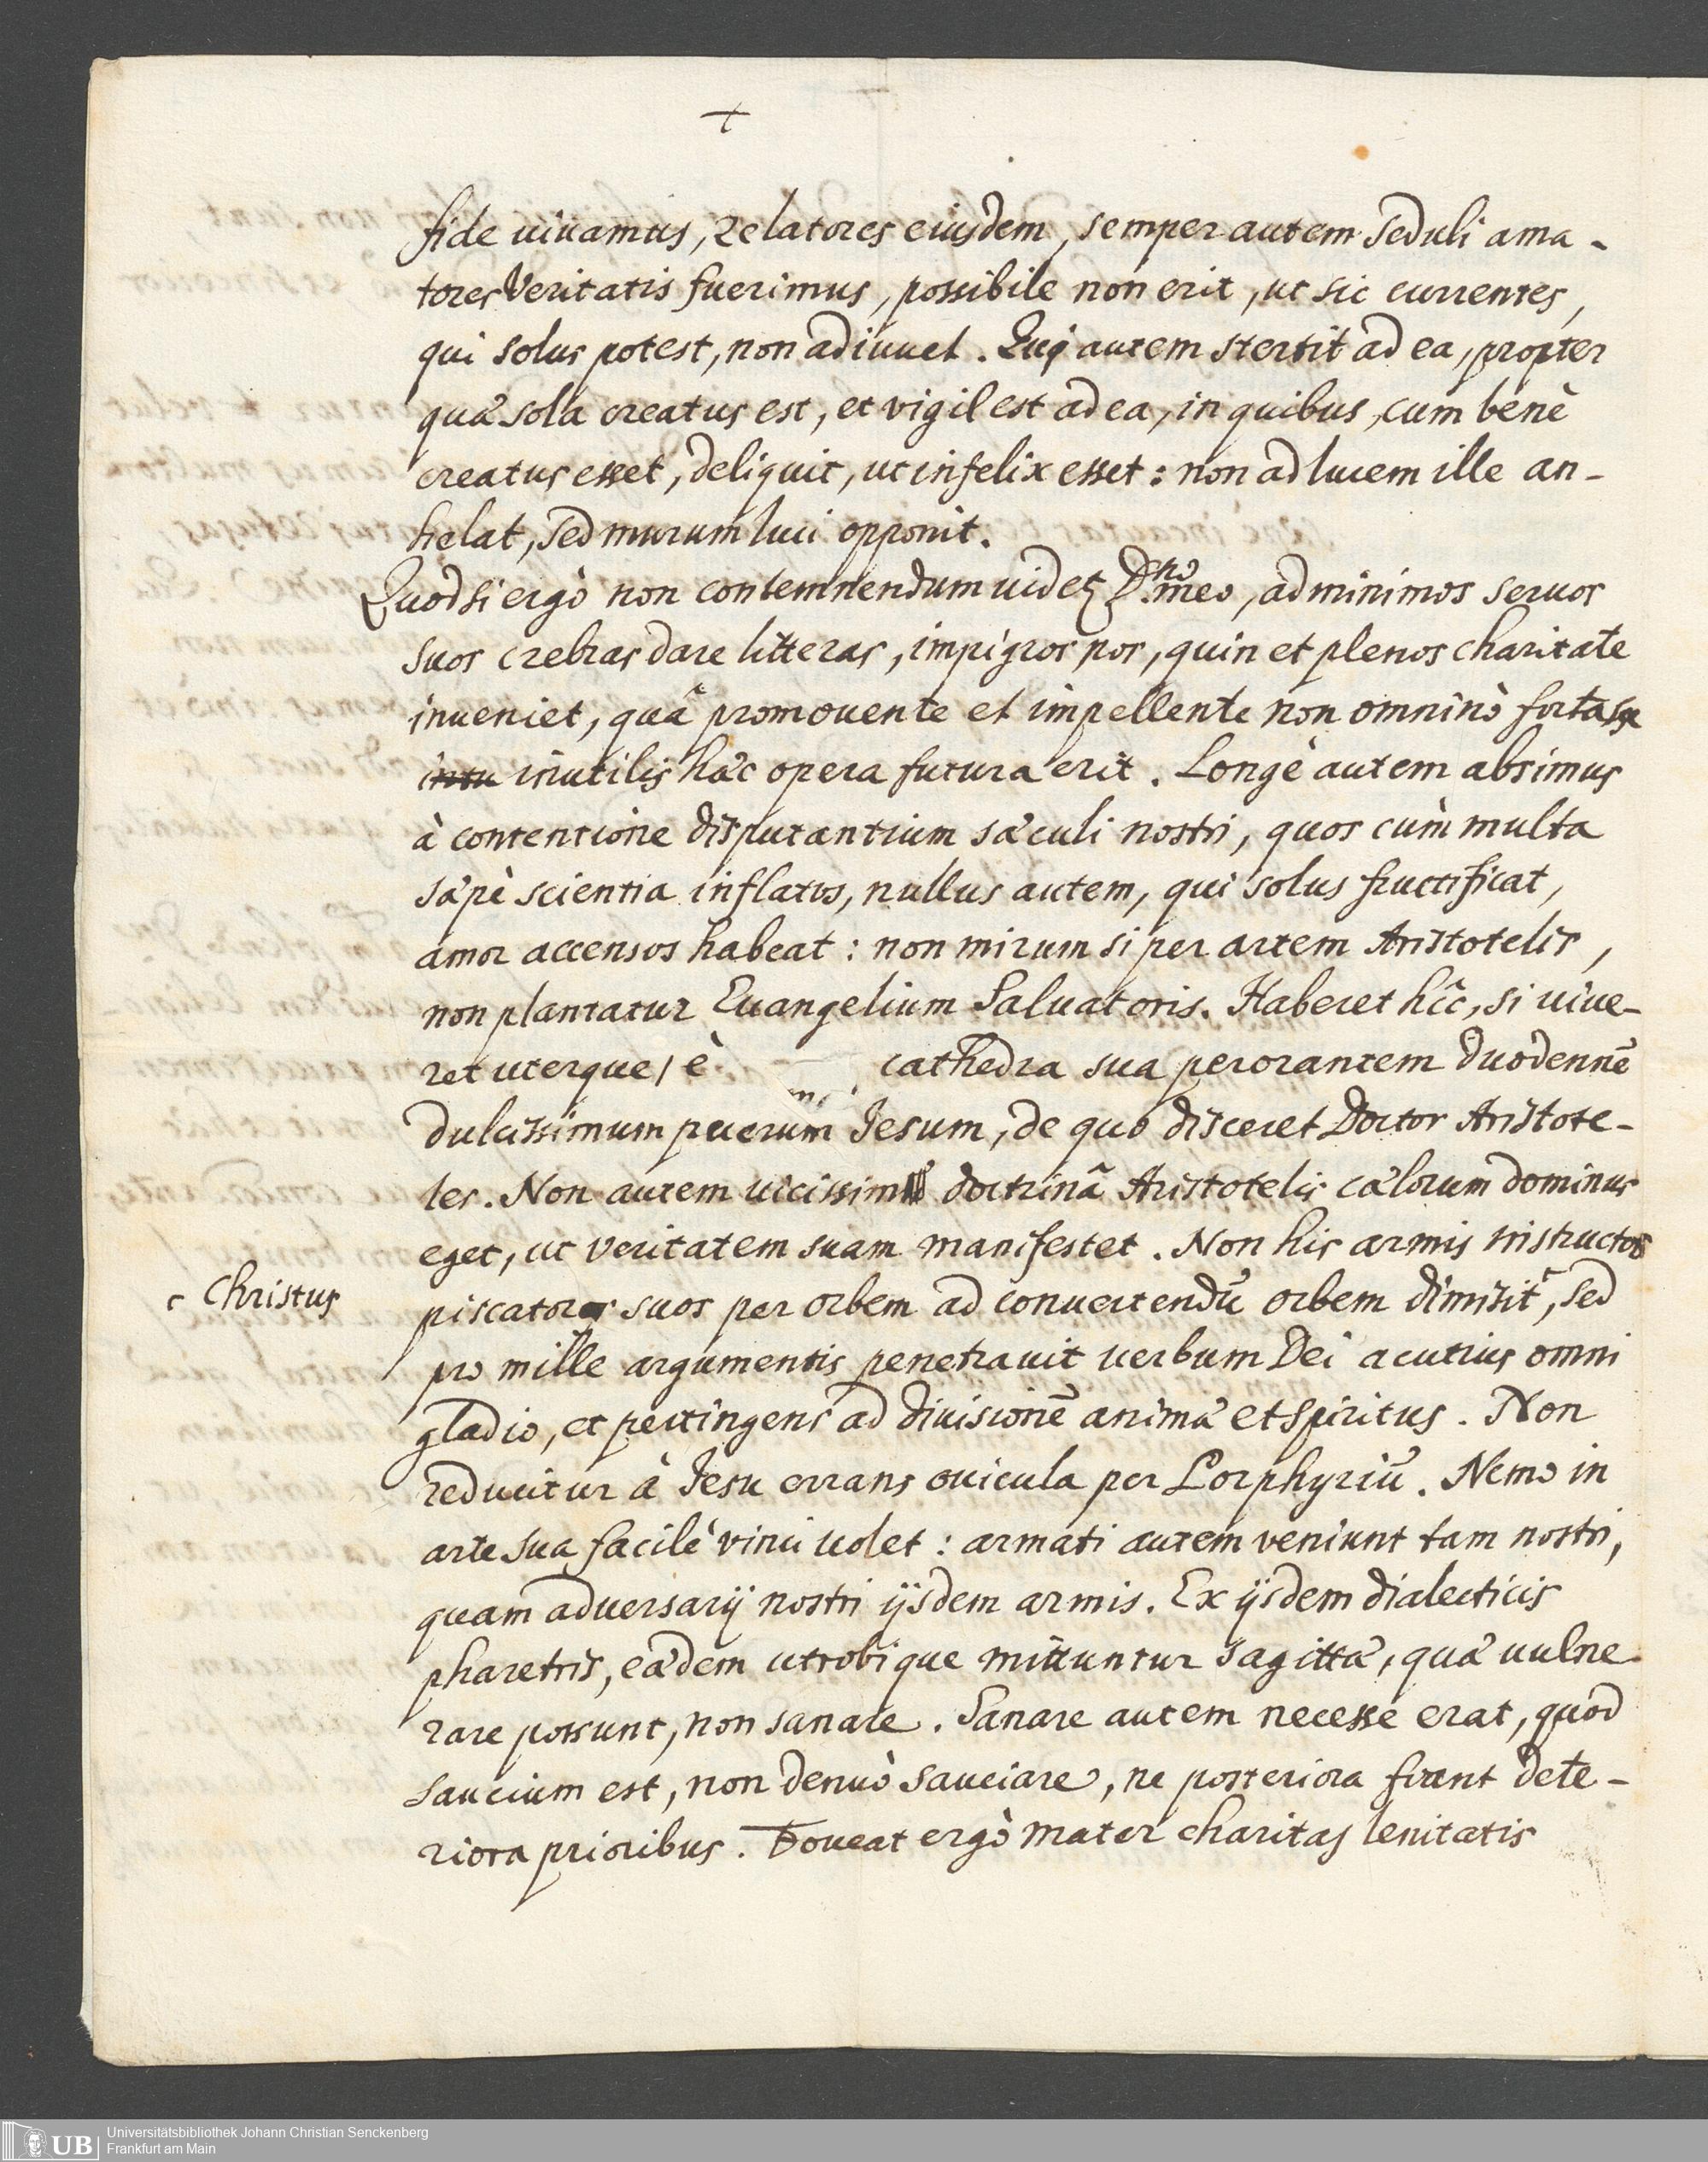 +
fide uiuamus, zelatores eiusdem, semper autem seduli ama-
tores veritatis fuerimus, possibile non erit, ut sic currentes,
qui solus potest, non adiuuet. Qui autem stertit ad ea, propter
quæ sola creatus est, et vigil est ad ea, in quibus, cum benè
creatus esset, deliquit, ut infelix esset: non ad lucem ille an-
helat, sed murum luci opponit.
Quodsi ergò non contemnendum uidetꝫ D.no meo, ad minimos seruos
suos crebras dare litteras, impigros nos, quin et plenos charitate
inueniet, quâ promouente et impellente non omninò fortasse
intu inutilis hæc opera futura erit. Longè autem absimus
à contentione disputantium sæculi nostri, quos cùm multa
sæpè scientia inflatos, nullus autem, qui solus fructificat,
amor accensos habeat: non mirum si per artem Aristotelis,
non plantatur Euangelium Saluatoris. Haberet hîc, si uiue-
ret uterque, è cathedra sua perorantem duodennē
dulcissimum puerum Jesum, de quo disceret Doctor Aristote-
les. Non autem uicissim doctrinâ Aristotelis cælorum dominus
eget, ut veritatem suam manifestet. Non his armis instructos
Christus
piscatores suos per orbem ad conuertendū orbem dimisit, sed
pro mille argumentis penetrauit uerbum Dei acutius omni
gladio, et pertingens ad diuisionē animæ et spiritus. Non
reducitur à Jesu errans ouicula per Porphyriū. Nemo in
arte sua facilè vinci uolet: armati autem veniunt tam nostri,
quam adversarij nostri ijsdem armis. Ex ijsdem dialecticis
pharetris, eædem utrobique mittuntur sagittæ, quæ uulne-
rare possunt, non sanare. Sanare autem necesse erat, quod
saucium est, non denuò sauciare, ne posteriora fiant dete-
riora prioribus. Foueat ergò mater charitas lenitatis
UB
Universitätsbibliothek Johann Christian Senckenberg
Frankfurt am Main